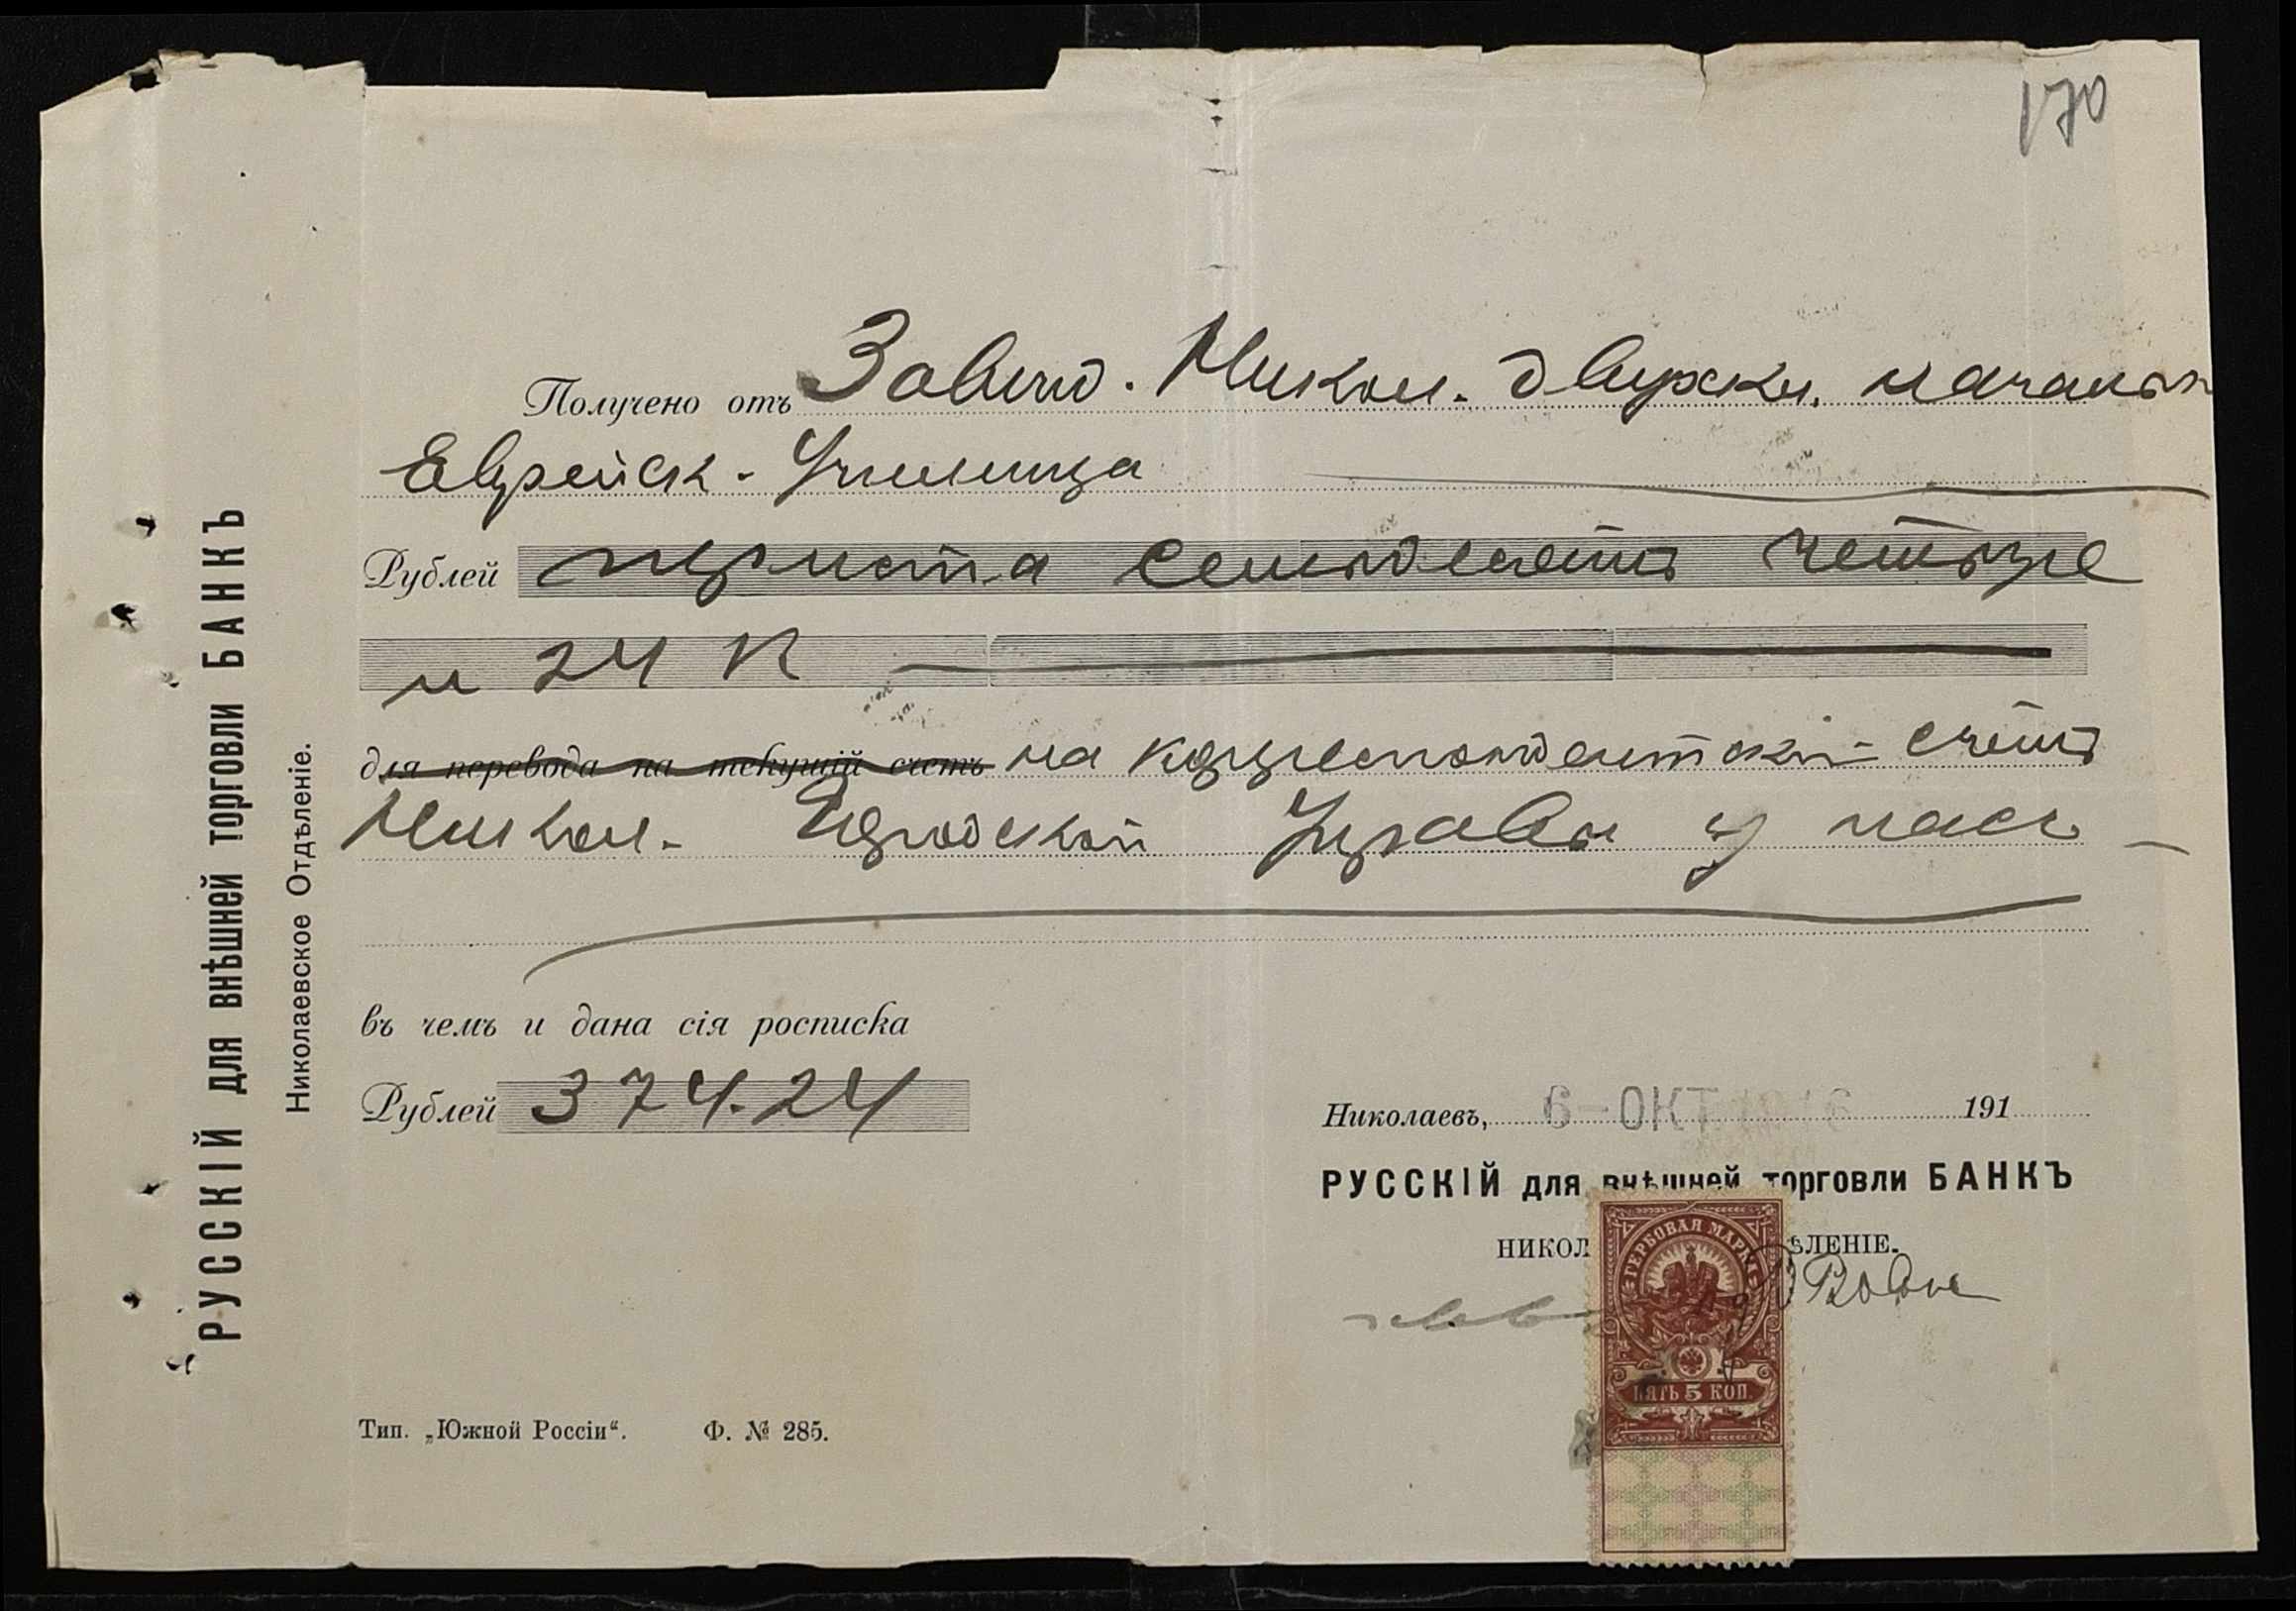 170
РУССКІЙ для внѣшней торговли БАНКЪ
Николаевское Отдѣленіе.
Получено отъ Завѣд. Никол. двухкл. начальн
Еврейск. Училища
Рублей триста семьдесятъ четыре
и 24 К
для перевода на текущій счетъ на корреспондентскій счётъ
Никол. Городской Управы у насъ
въ чемъ и дана сія росписка
Рублей 374.24
Николаевъ, 6-ОКТ 191
РУССКІЙ для внѣшней торговли БАНКЪ
НИКОЛ ѢЛЕНІЕ.
ГЕРБОВАЯ МАРКА
ПЯТЬ 5 КОП.
Тип. „Южной Россіи“. Ф. № 285.